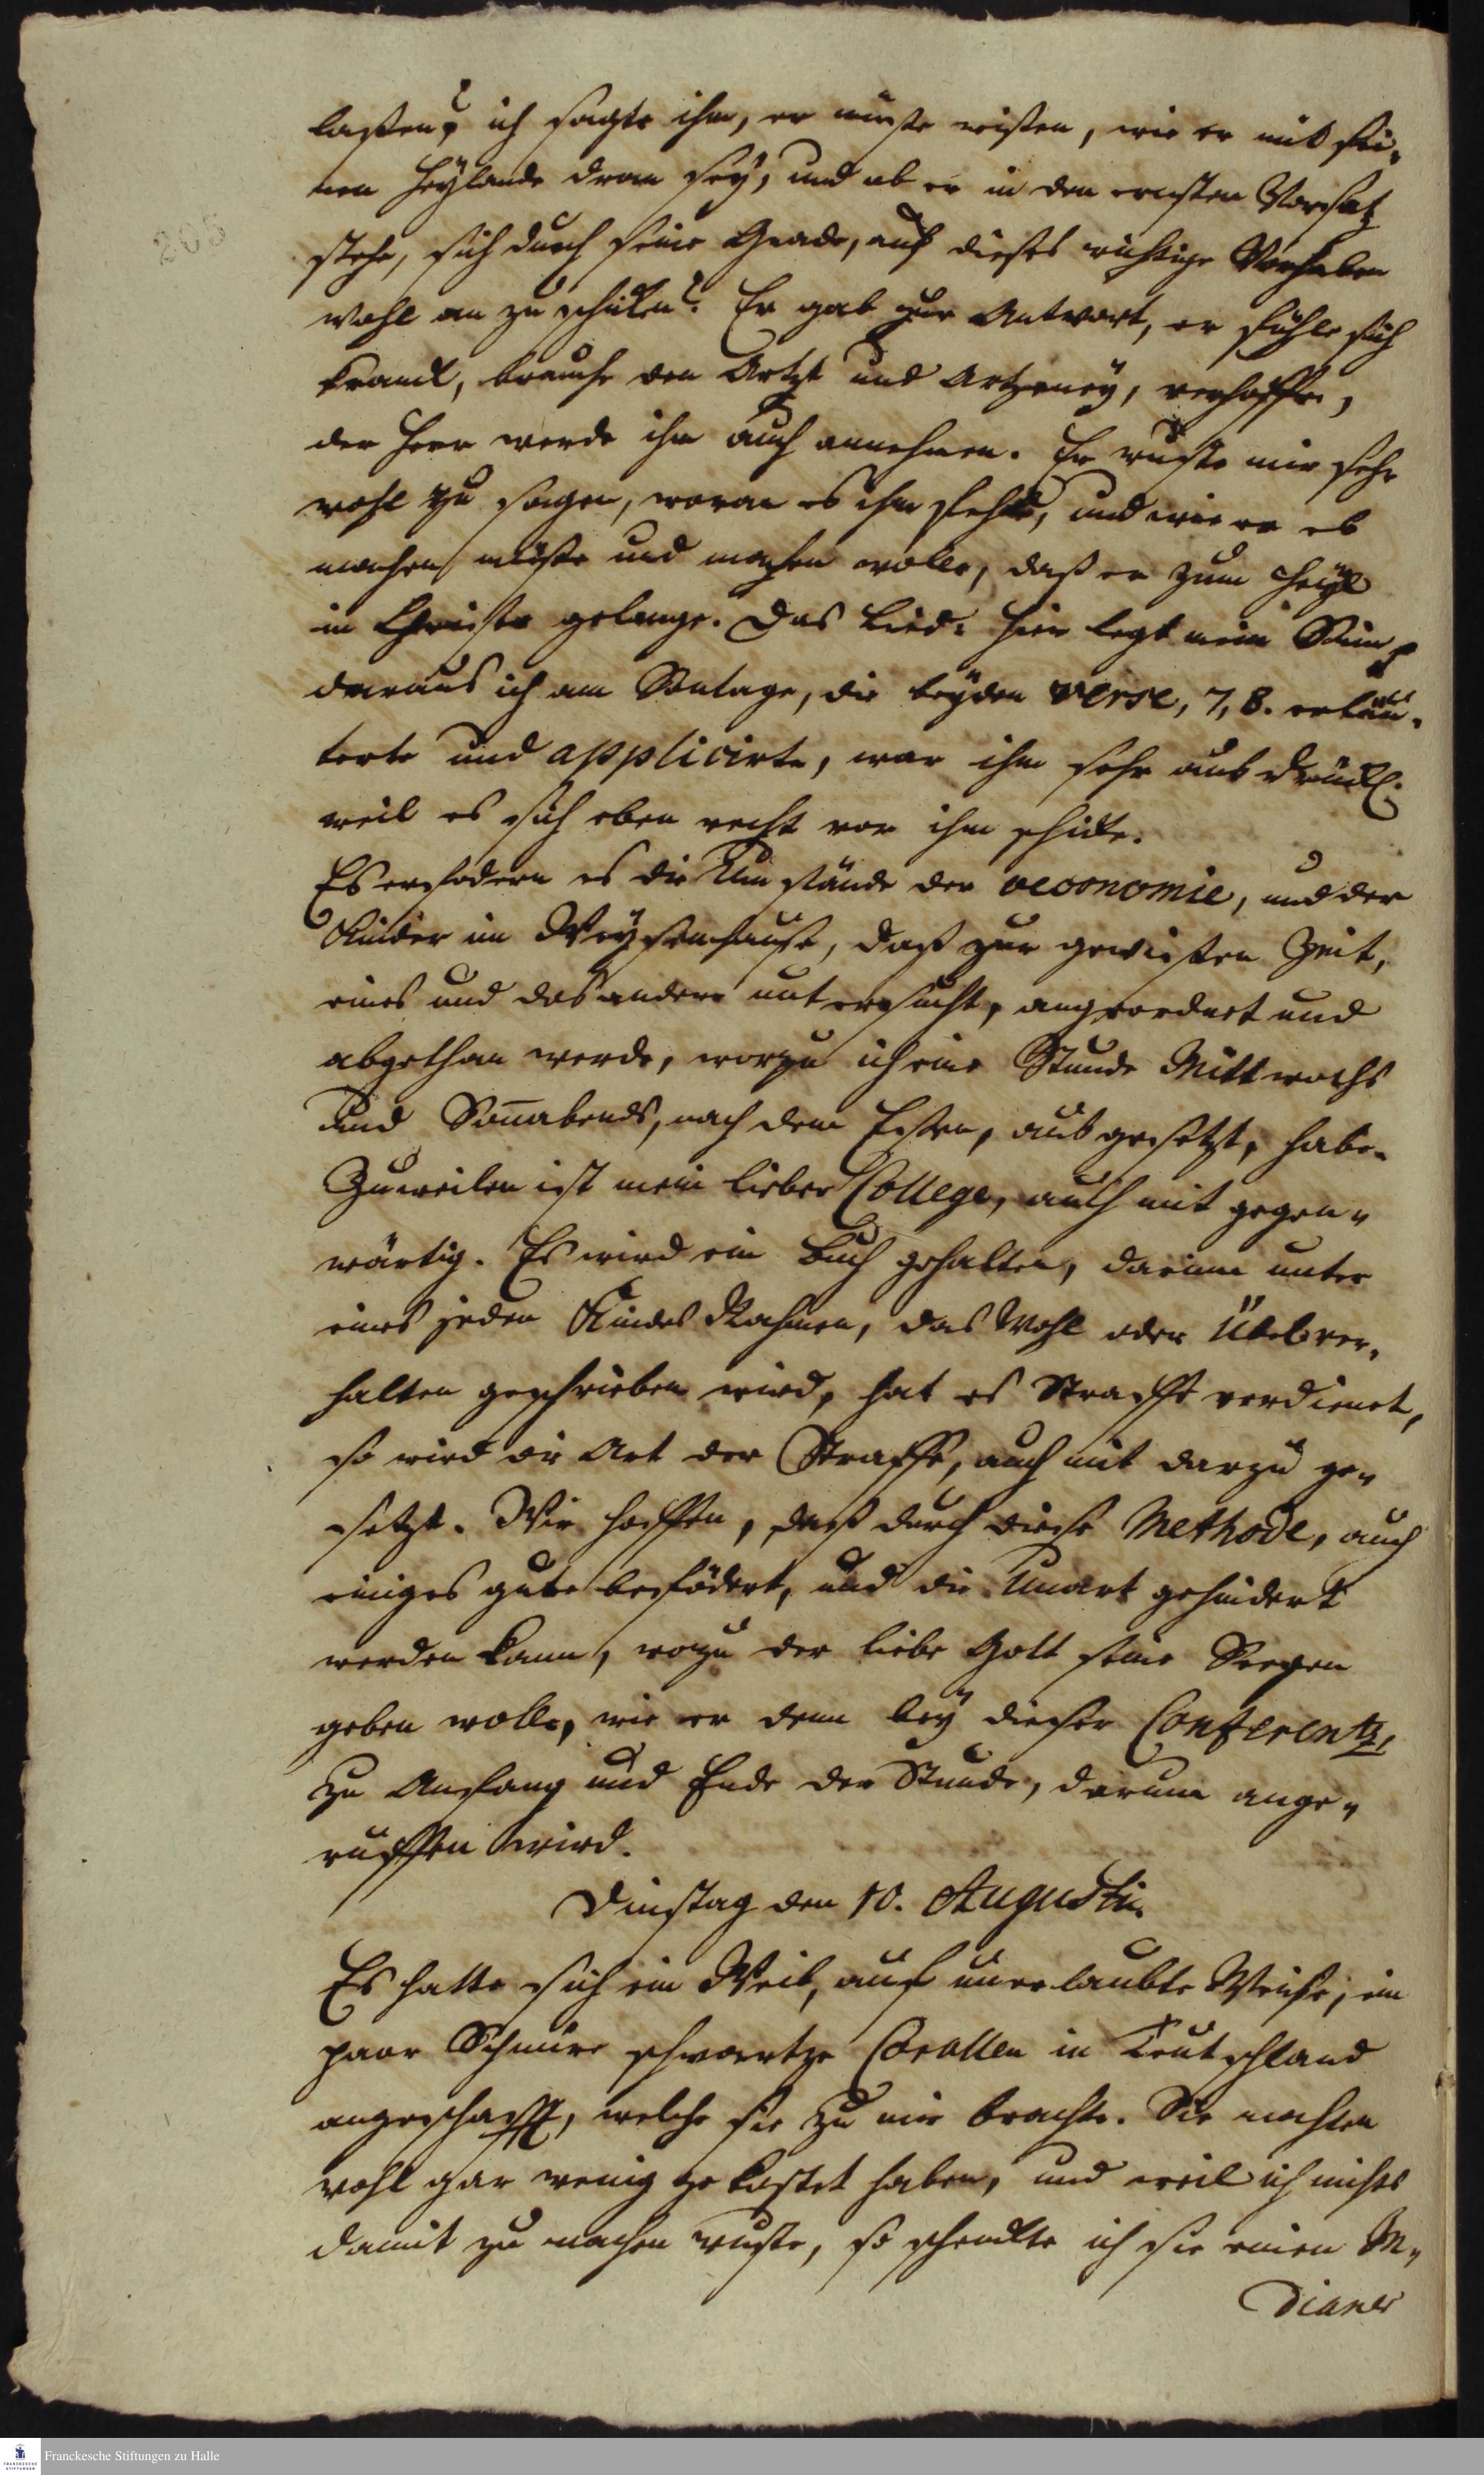 laßen? ich sagte ihm, er müste wißen, wie er mit sei-
nen Heylande dran sey, und ob er in den ernsten Vorsatz
stehe, sich durch seine Gnade, auf dieses wichtige Vorhaben
wohl an zu schicken? Er gab zur Antwort, er fühle sich
kranck, brauche den Artzt und Artzeney, verhoffe,
der Herr werde ihn auch annehmen. Er wuste mir sehr
wohl zu sagen, woran es ihm fehle, und wie er es
machen müste und machen wolle, daß er zum Heyl
in Christo gelange. Das Lied: Hier legt mein Sinn p
daraus ich am Sontage, die beyden verse, 7, 8. erläu-
terte und applicirte, war ihm sehr aus drückl.
weil es sich eben recht vor ihm schickte.
Es erfodern es die Umstände der oeconomie, und der
Kinder im Weysenhause, daß zur gewißen Zeit,
eines und das andere untersucht, angeordnet und
abgethan werde, worzu ich eine Stunde Mittwochs
und Soñabends, nach dem Eßen, aus gesetzt, habe.
Zuweilen ist mein lieber College, auch mit gegen-
wärtig. Es wird ein Buch gehalten, darinn unter
eines jeden Kindes Nahmen, das Wohl oder Übelver-
halten geschrieben wird, hat es Straffe verdienet,
so wird die Art der Straffe, auch mit darzu ge-
setzt. Wir hoffen, daß durch diese Methode, auch
einiges gute befördert, und die Unart gehindert
werden kann, wozu der liebe Gott seine Seegen
geben wolle, wie er denn bey dieser Conferentz,
zu Anfang und Ende der Stunde, darum ange-
ruffen wird.
Dinstag den 10. Augusti.
Es hatte sich ein Weib, auf unerlaubte Weise, ein
paar Schnüre schwartze Corallen in Teutschland
angeschafft, welche sie zu mir brachte. Sie mochten
wohl gar wenig gekostet haben, und weil ich nichts
damit zu machen wuste, so schenckte ich sie einen In-
dianer
205
Franckesche Stiftungen zu Halle